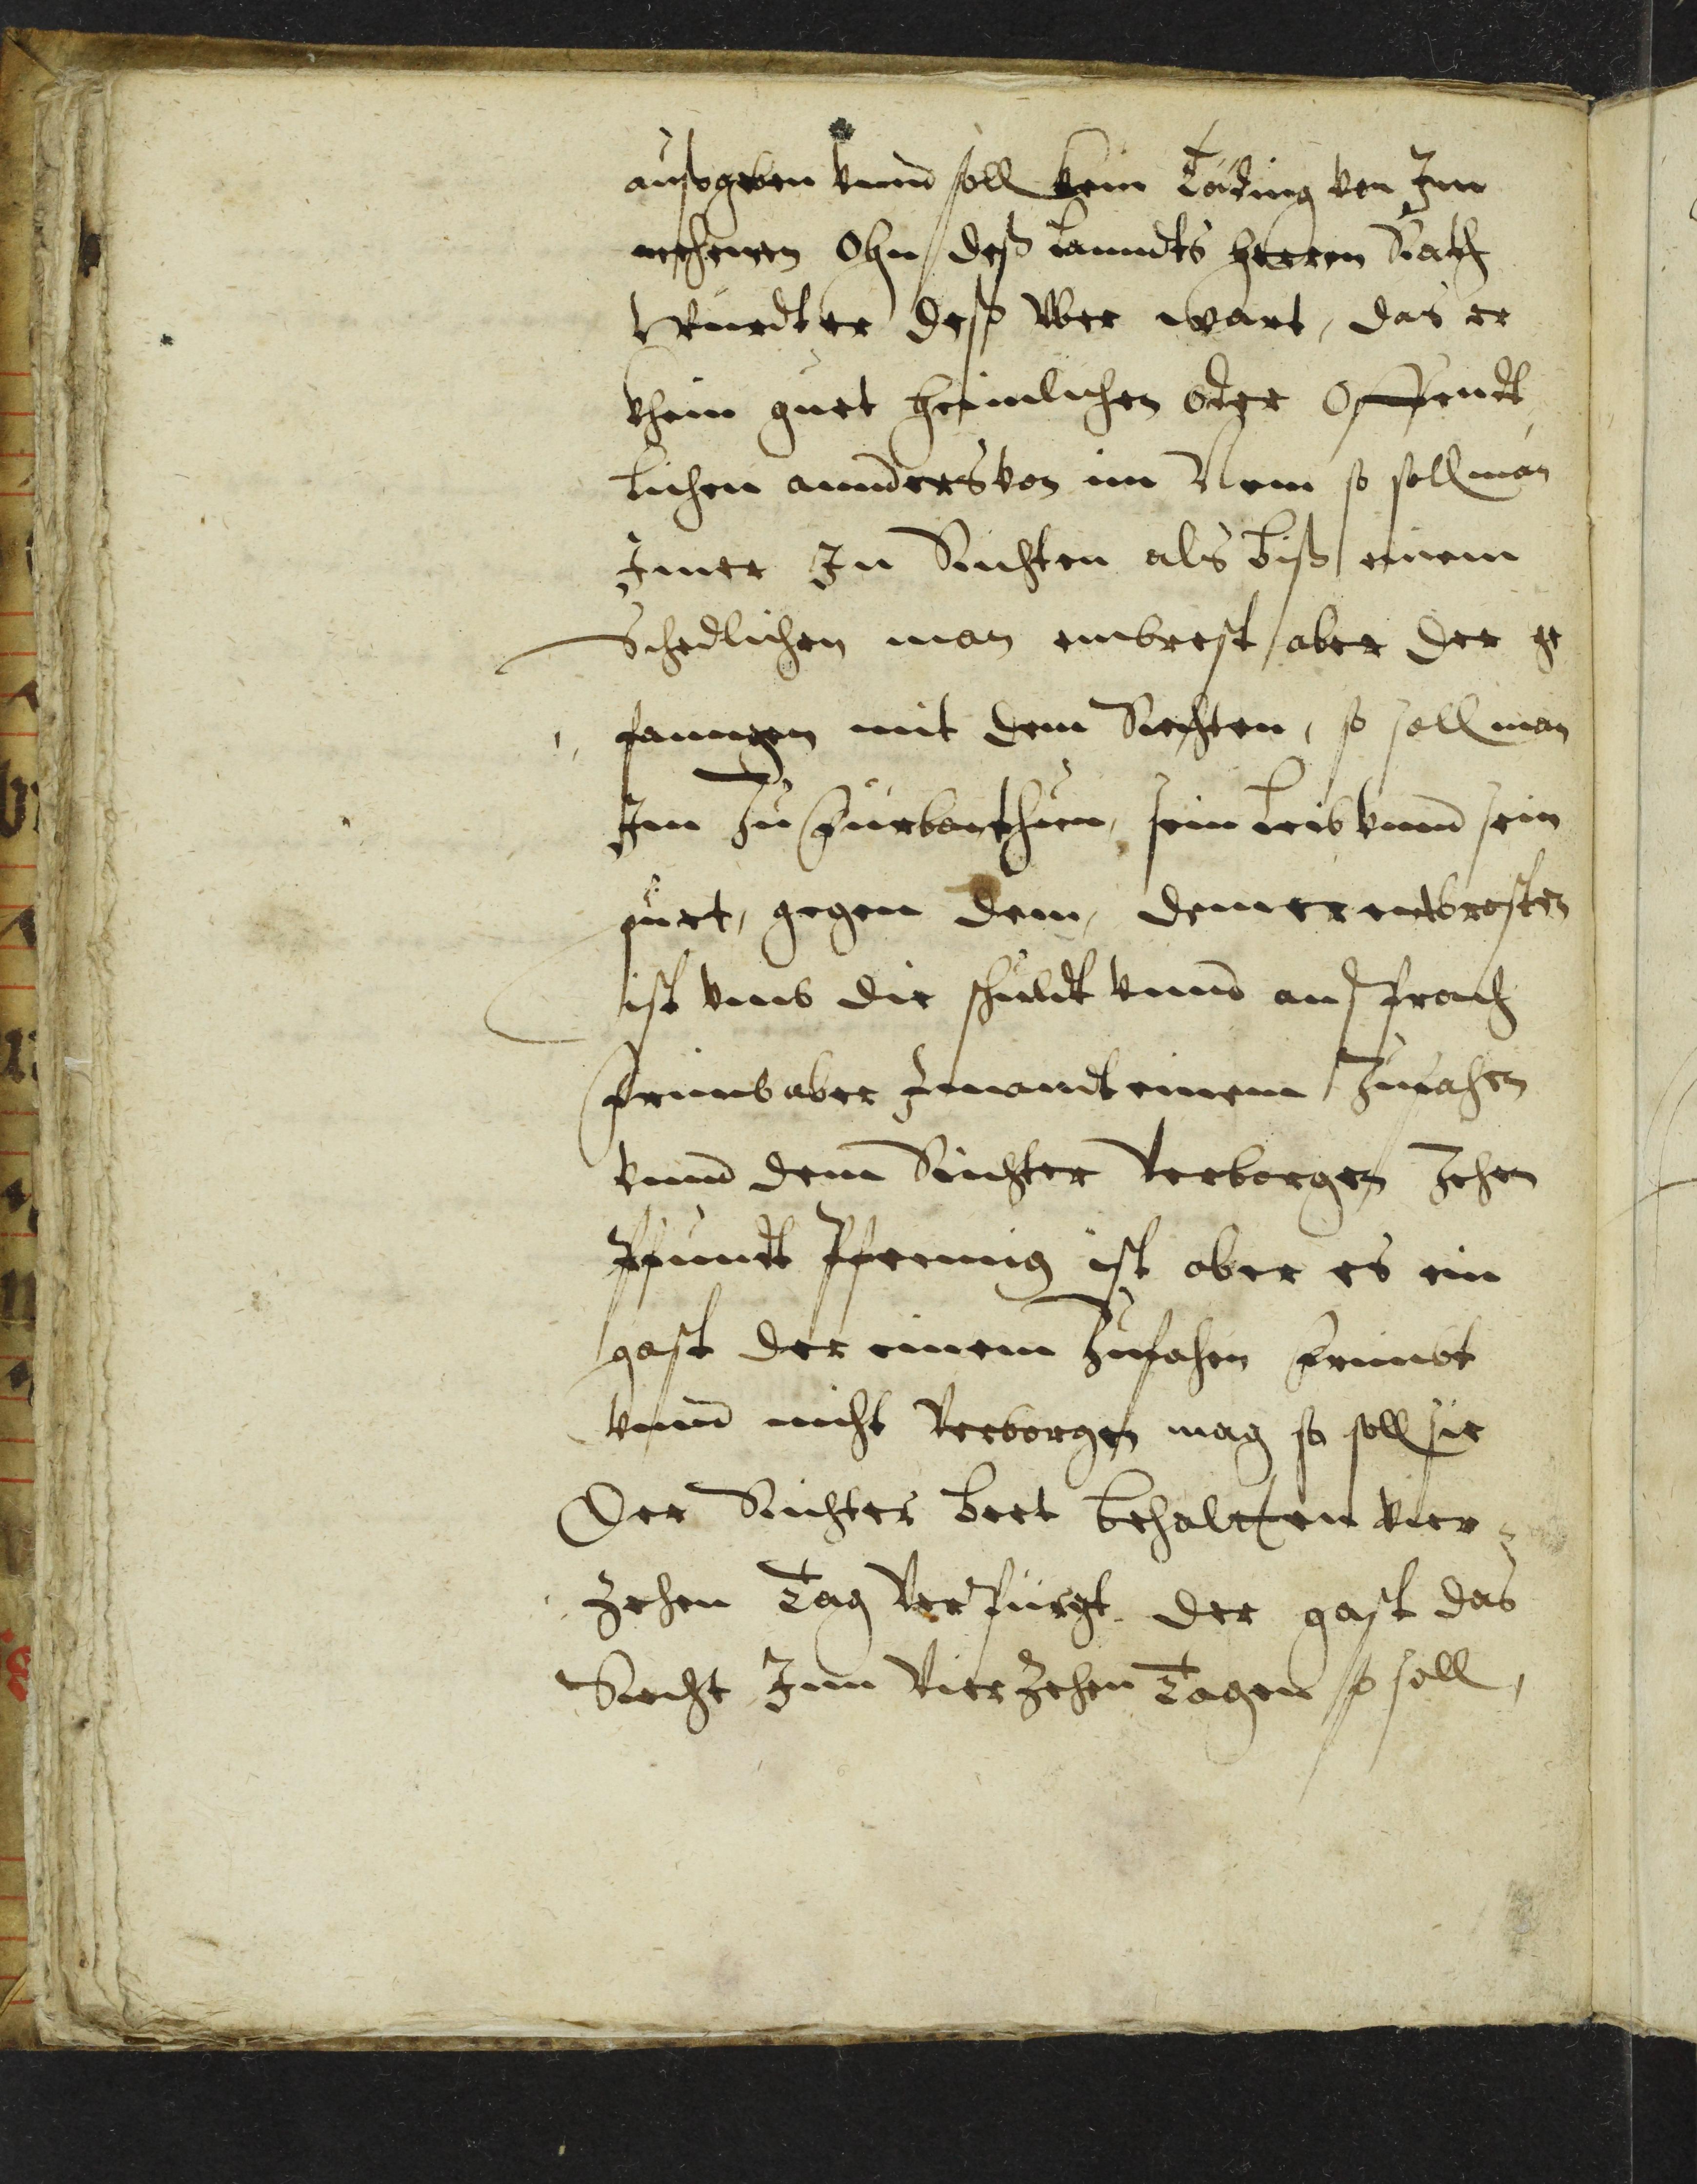 außgeben vnnd soll kein Täding von Im
nehemen Ohn deß Lanndts herren Rath
Wurdt er deß Wer wart, das er
khein guet heimlichen oder Offendt
lichen annders von im Nem so soll man
Imer Zu Richten als biß einem
Schedlichen man embrest aber der ge
fanngen mit dem Rechten, so soll man
Im Zu fürban thuen, sein Leib vnnd sein
guet, gegen dem, dem er embrosten
ist vmb die schuldt vnnd ansprach
frimb aber Jmandt einem Zufahen
vnnd dem Richter Verborgen Zehen
Pfundt Pfennig ist aber es ein
gast der einem Zufahen frimbt
vnnd nicht Verborgen mag so soll sie
Der Richter beet behaltten vier
zehen Tag Verpürgt der gast das
Recht Inn Vierzehen Tagen so soll,